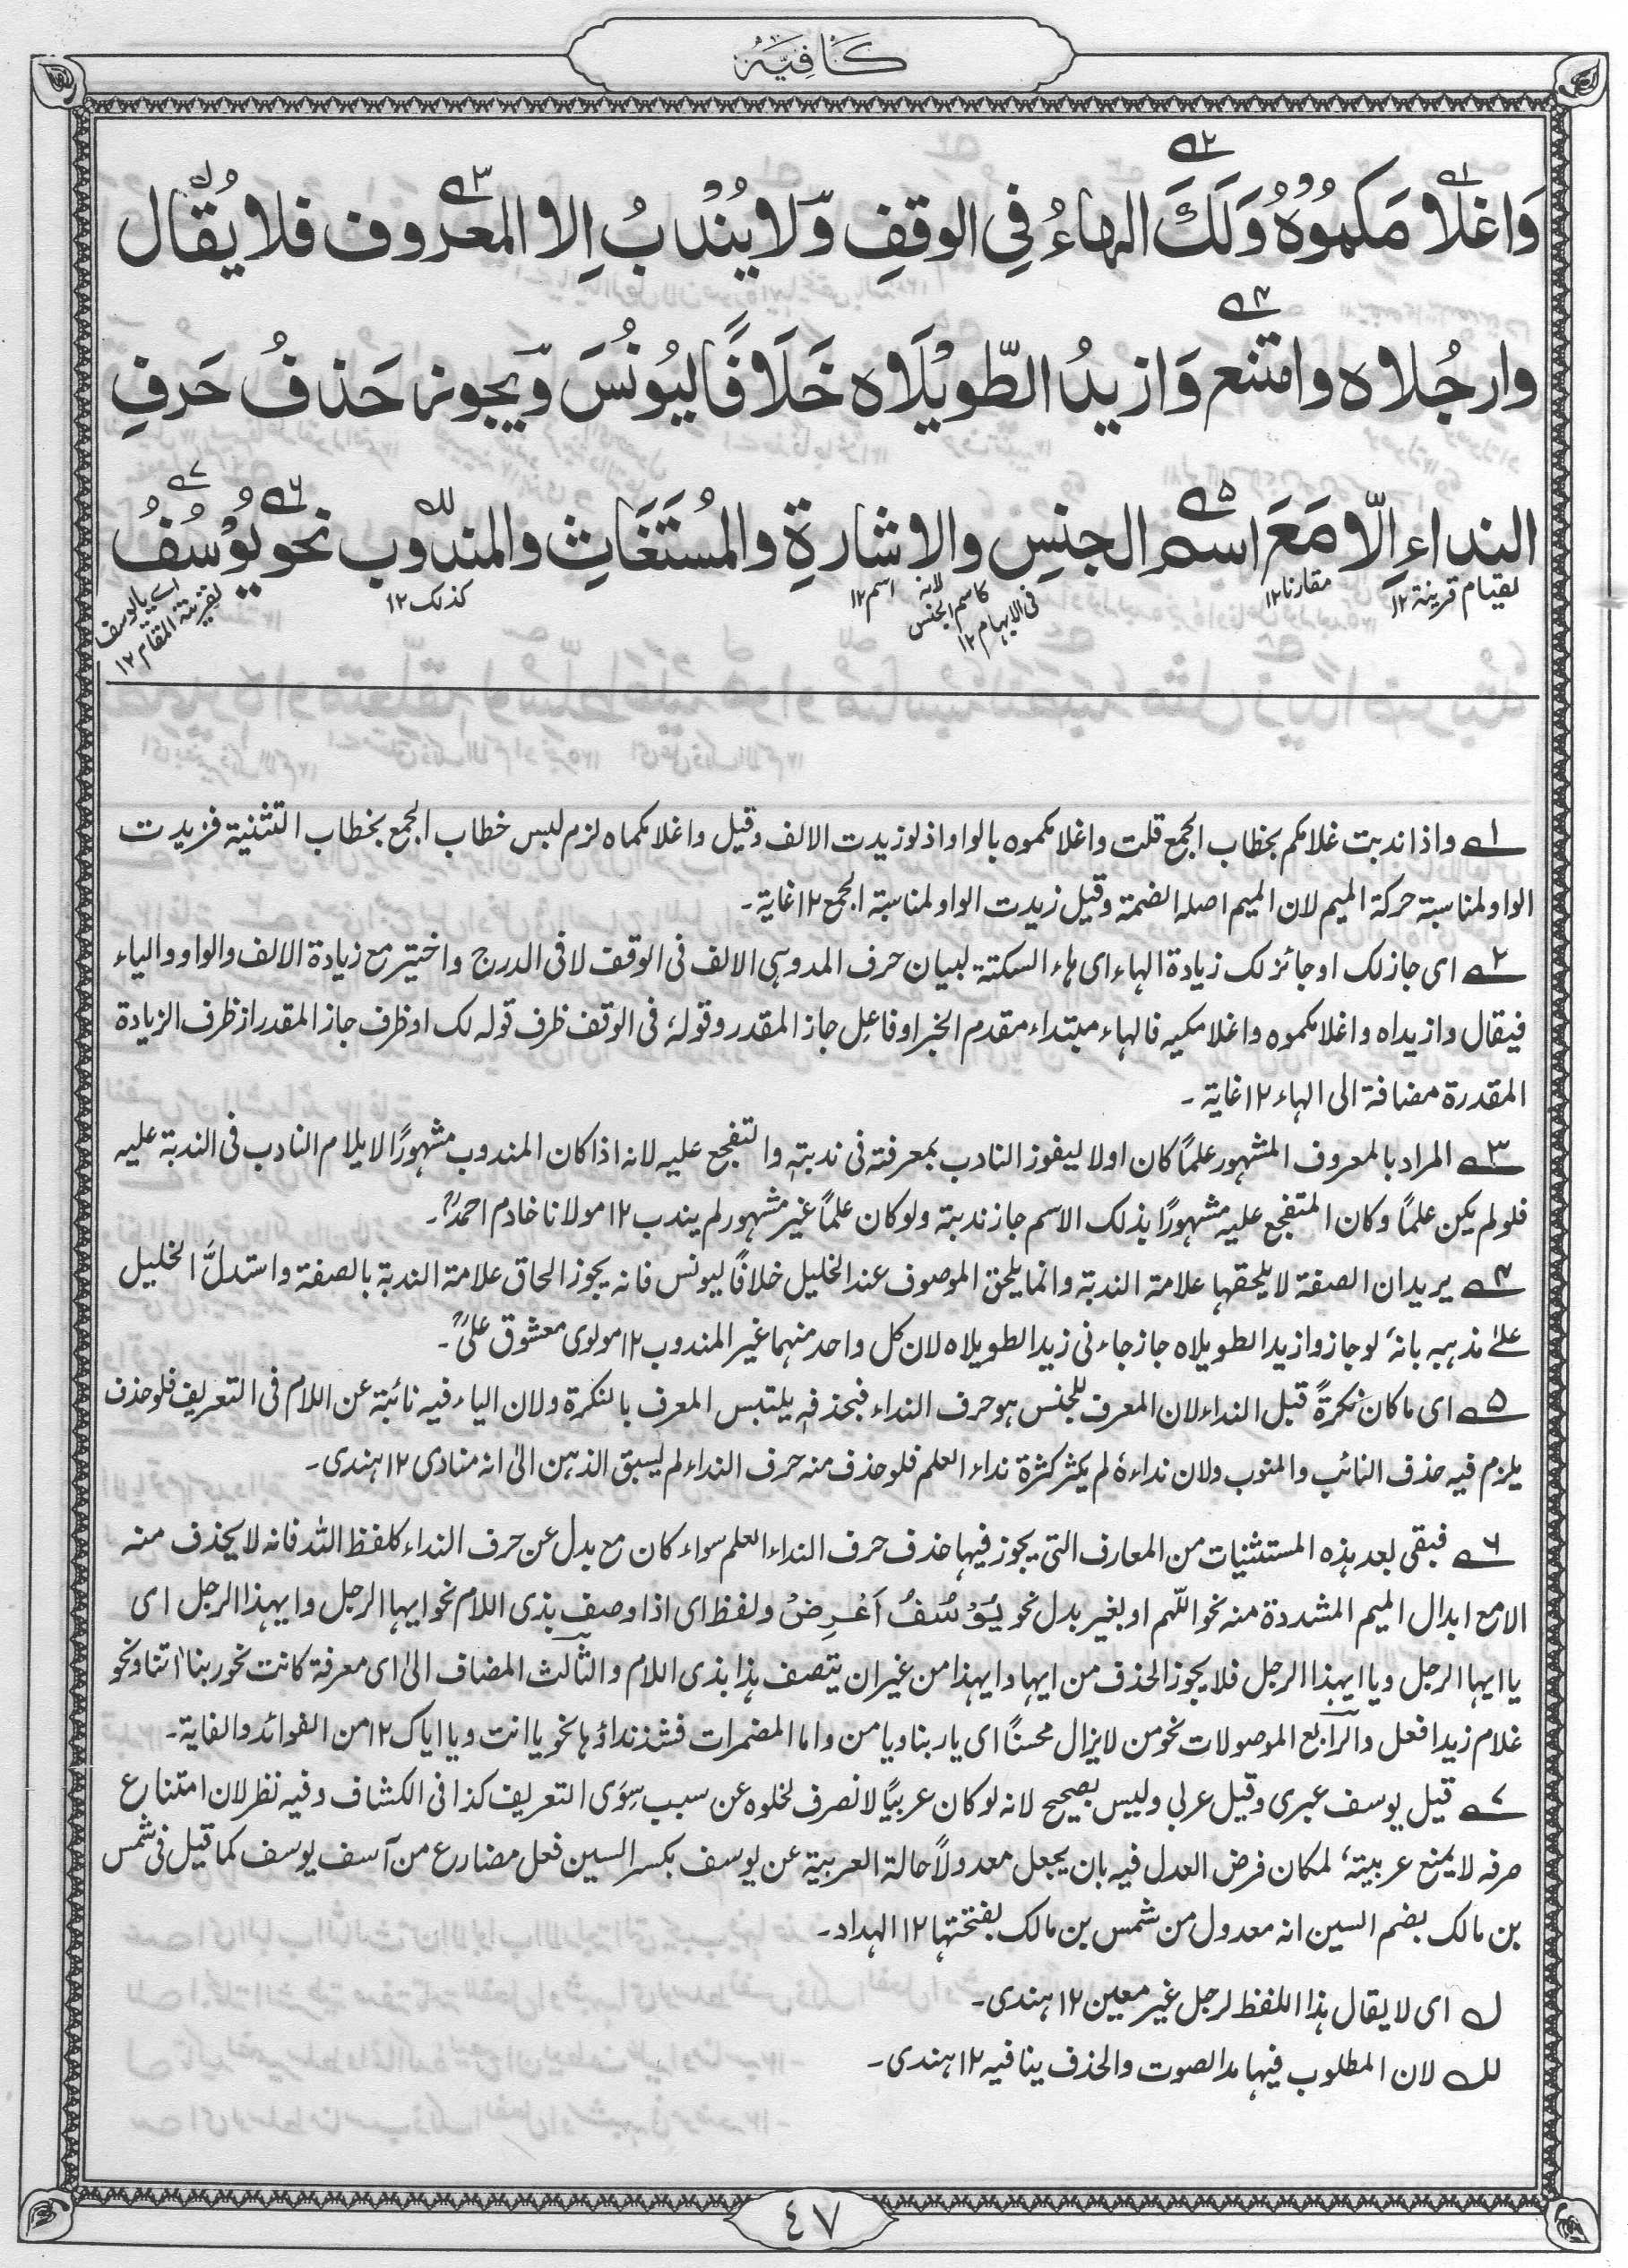 كَافِيَہ
وَاغُلَا مَكُمُوْهُ وَلَكَ الهاءُ فِي الوقفِ وَلا يُنْدَبُ اِلا المعروف فلا يُقال
وارجُلاه وامتنع وَازيدُ الطّويْلَاه خَلَافًا ليُونُسَ وَّيجوز حَذفُ حَرفِ
النداءِ اِلّا مَعَ اسمِ الجنسِ والاشارةِ والمُستَغَاثِ والمندوب نحو يُوْسُفُ
لقيام قرينة ١٢ مقارنا ١٢ لانہ كاسم الجنس فى الابہام ١٢ اسم ١٢ كذلک ١٢ اے يايوسف لقرينة المقام ١٢
١؎ واذا ندبت غلامكم بخطاب الجمع قلت واغلامكموه بالواو اذ لو زيدت الالف وقيل واغلامكماه لزم لبس خطاب الجمع بخطاب التثنية فزيدت
الواو لمناسبة حركة الميم لان الميم اصلہ الضمة وقيل زيدت الواو لمناسبة الجمع ١٢ غاية۔
٢؎ اى جاز لک او جائز لک زيادة الهاء اى ہاء السكتة لبيان حرف المد وہى الالف فى الوقف لا فى الدرج واختير مع زيادة الالف والواو والياء
فيقال وازيداه واغلامكموه واغلامكيہ فالهاء مبتداء مقدم الخبر او فاعل جاز المقدر وقولہ، فى الوقف ظرف قولہ لک او ظرف جاز المقدر از ظرف الزيادة
المقدرة مضافة الى الهاء ١٢ غاية۔
٣؎ المراد بالمعروف المشهور علماً كان اولا ليفوز النادب بمعرفتہ فى ندبتہ والتفجع عليہ لانہ اذا كان المندوب مشهورًا لا يلام النادب فى الندبة عليہ
فلو لم يكن علماً وكان المتفجع عليہ مشهورًا بذلک الاسم جاز ندبتہ ولو كان علماً غير مشهور لم يندب ١٢ مولانا خادم احمدؒ۔
٤؎ يريد ان الصفة لا يلحقها علامة الندبة وانما يلحق الموصوف عند الخليل خلافًا ليونس فانہ يجوز الحاق علامة الندبة بالصفة واستدلَّ الخليل
علےٰ مذہبہ بانہٗ لو جاز وازيد الطويلاه جاز جاءنى زيد الطويلاه لان كل واحد منهما غير المندوب ١٢ مولوى معشوق علىؒ۔
٥؎ اى ما كان نكرةً قبل النداء لان المعرف للجنس ہو حرف النداء فبحذفہ يلتبس المعرف بالنكرة ولان الياء فيہ نائبة عن اللام فى التعريف فلو حذف
يلزم فيہ حذف النائب والمنوب ولان نداءہٗ لم يكثر كثرة نداء العلم فلو حذف منہ حرف النداء لم يسبق الذہن الىٰ انہ منادى ١٢ ہندى۔
٦؎ فبقى بعد ہذہ المستثنيات من المعارف التى يجوز فيها حذف حرف النداء العلم سواء كان مع بدل عن حرف النداء كلفظ اللّٰہ فانہ لا يحذف منہ
الا مع ابدال الميم المشددة منہ نحو اللّٰہم او بغير بدل نحو يُوْسُفُ اَعْرِضْ ولفظ اى اذا وصف بذى اللام نحو ايها الرجل وايہذا الرجل اى
يا ايها الرجل ويا ايہذا الرجل فلا يجوز الحذف من ايها وايہذا من غير ان يتصف ہذا بذى اللام والثالث المضاف الىٰ اى معرفة كانت نحو ربنا اٰتنا ونحو
غلام زيد افعل والرابع الموصولات نحو من لا يزال محسنًا اى يا ربنا ويا من واما المضمرات فشذ نداؤہا نحو يا انت ويا اياک ١٢ من الفوائد والغاية۔
٧؎ قيل يوسف عبرى وقيل عربى وليس بصحيح لانہ لو كان عربيًا لانصرف لخلوہ عن سبب سِوَى التعريف كذا فى الكشاف وفيہ نظر لان امتناع
صرفہ لا يمنع عربيتہ، لمكان فرض العدل فيہ بان يجعل معدولاً حالة العربية عن يوسف بكسر السين فعل مضارع من آسف يوسف كما قيل فى شمس
بن مالک بضم السين انہ معدول من شمس بن مالک بفتحتها ١٢ الہداد۔
ل؎ اى لا يقال ہذا اللفظ لرجل غير معين ١٢ ہندى۔
لل؎ لان المطلوب فيها مد الصوت والحذف ينافيہ ١٢ ہندى۔
٤٧